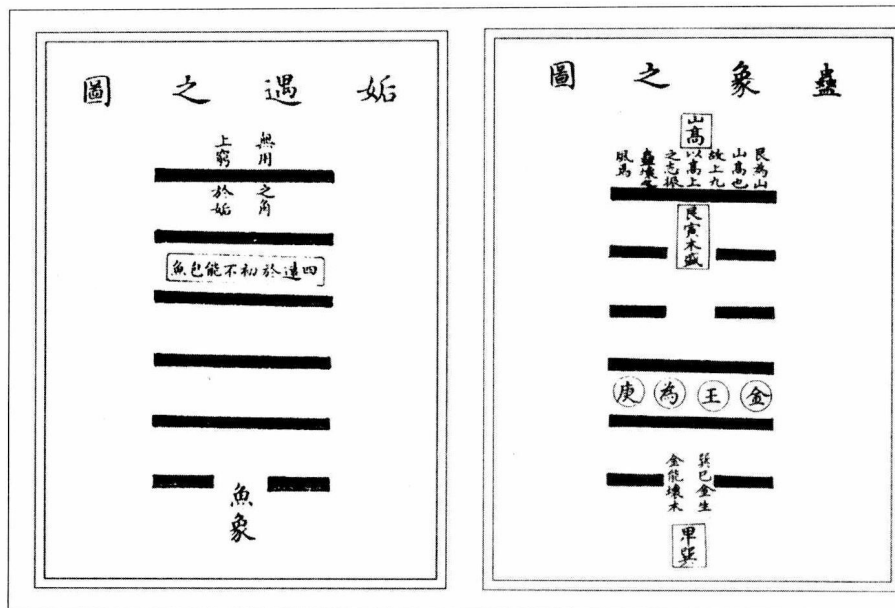 蠱象之圖
山高
艮為山
山高也
故上九
以高上
之志振
蠱壞
艮寅木盛
金王為庚
巽巳金生
金能壞木
卑巽
姤遇之圖
無用之角
上窮於姤
四遠於初不能包魚
魚象